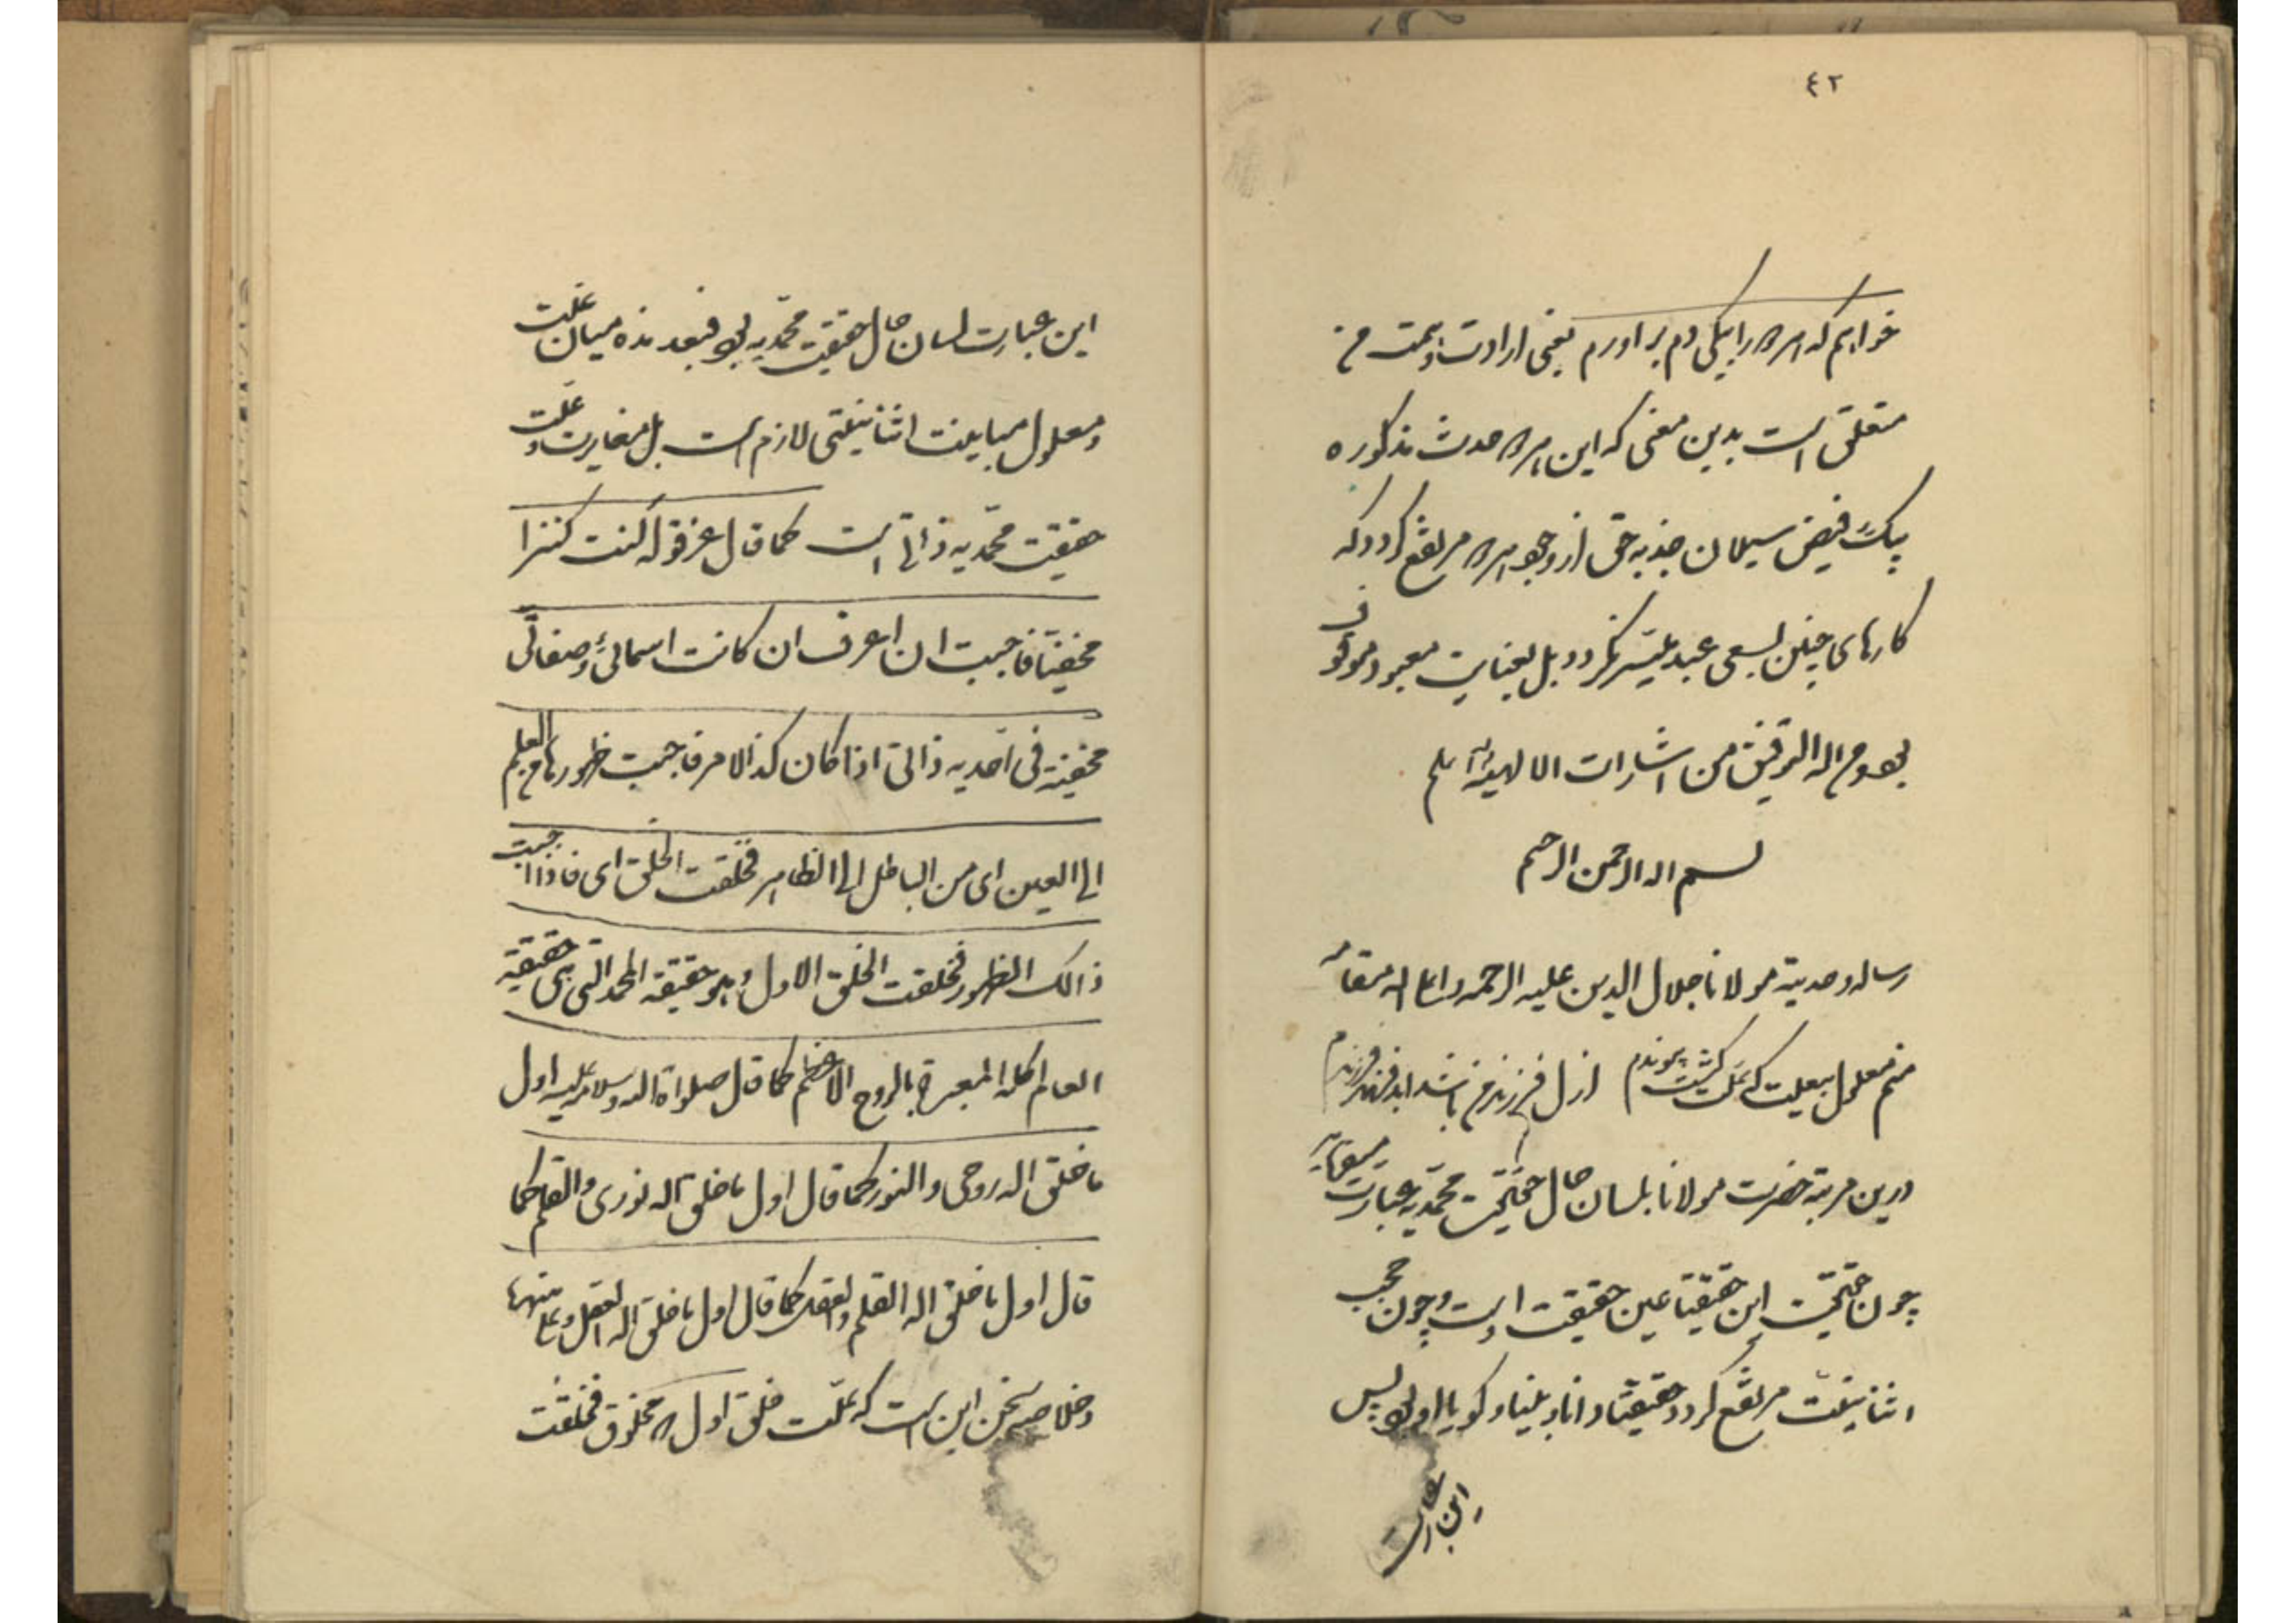 ٤٢
خواهم که هر سه را بیکی دم بر آورم یعنی ارادت و همت من
متعلق است بدین معنی که این هر سه حدث مذکوره
بیک فیض سیلان جذبه حق از وجود هر سه مرتفع کردد که
کارهای چنین بسعی عبد میسر نکردد بل بعنایت معبود موقوف
بود و من الله التوفیق من اشارات الالهیة
بسم الله الرحمن الرحیم
رساله وحدیة مولانا جلال الدین علیه الرحمه و اعلا الله مقامه
منم معلول بیعلت که علت کشت پیوندم ازل فرزند من باشد ابد فرزند فرزندم
درین مرتبه حضرت مولانا بلسان حال حقیقت محمدیه عبارت میفرماید
چون حقیقت این حقیقتا عین حقیقت اوست و چون حجب
اثنانیت مرتفع کردد حقیقتا دانا و بینا و کویا او بود پس
این عبارت
این عبارت لسان حال حقیقت محمدیه بود فبعد هذه میان علت
و معلول مباینت اثنانیتی لازم است بل مغایرت و علت
حقیقت محمدیه ذاتی است کما قال عز قوله کنت کنزا
مخفیا فاحببت ان اعرف ان کانت اسمائی و صفاتی
مخفیة فی احدیه ذاتی اذا کان کذا الامر فاحببت ظهورها من العلم
الی العین ای من الباطن الی الظاهر فخلقت الخلق ای فاذا احببت
ذالک الظهور فخلقت الخلق الاول و هو حقیقة المحمد التی هی حقیقة
العالم کله المعبرة بالروح الاعظم کما قال صلواة الله و سلامه علیه اول
ما خلق الله روحی و النور کما قال اول ما خلق الله نوری و القلم کما
قال اول ما خلق الله القلم والعقل کما قال اول ما خلق الله العقل و علی منها
و خلاصه سخن این است که علت خلق اول و مخلوق فخلقت